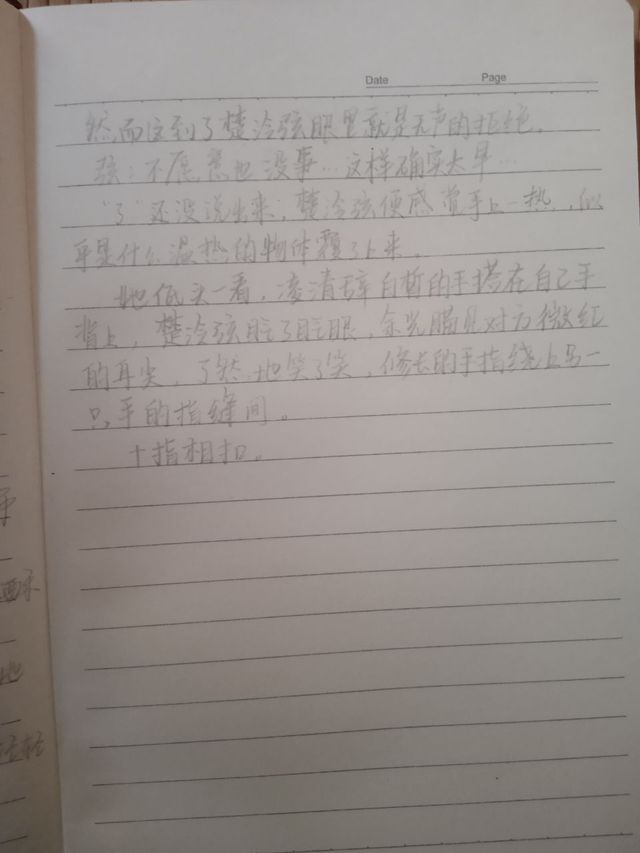 Date Page
然而这到了楚泠弦眼里就是无声的拒绝。
弦：不愿意也没事…这样确实太早…
“了”还没说出来，楚泠弦便感觉手上一热，似
乎是什么温热的物体覆了上来。
她低头一看，凌清辞白皙的手搭在自己手
背上，楚泠弦眨了眨眼，余光瞄见对方微红
的耳尖，了然地笑了笑，修长的手指绕上另一
只手的指缝间。
十指相扣。
地
轻轻